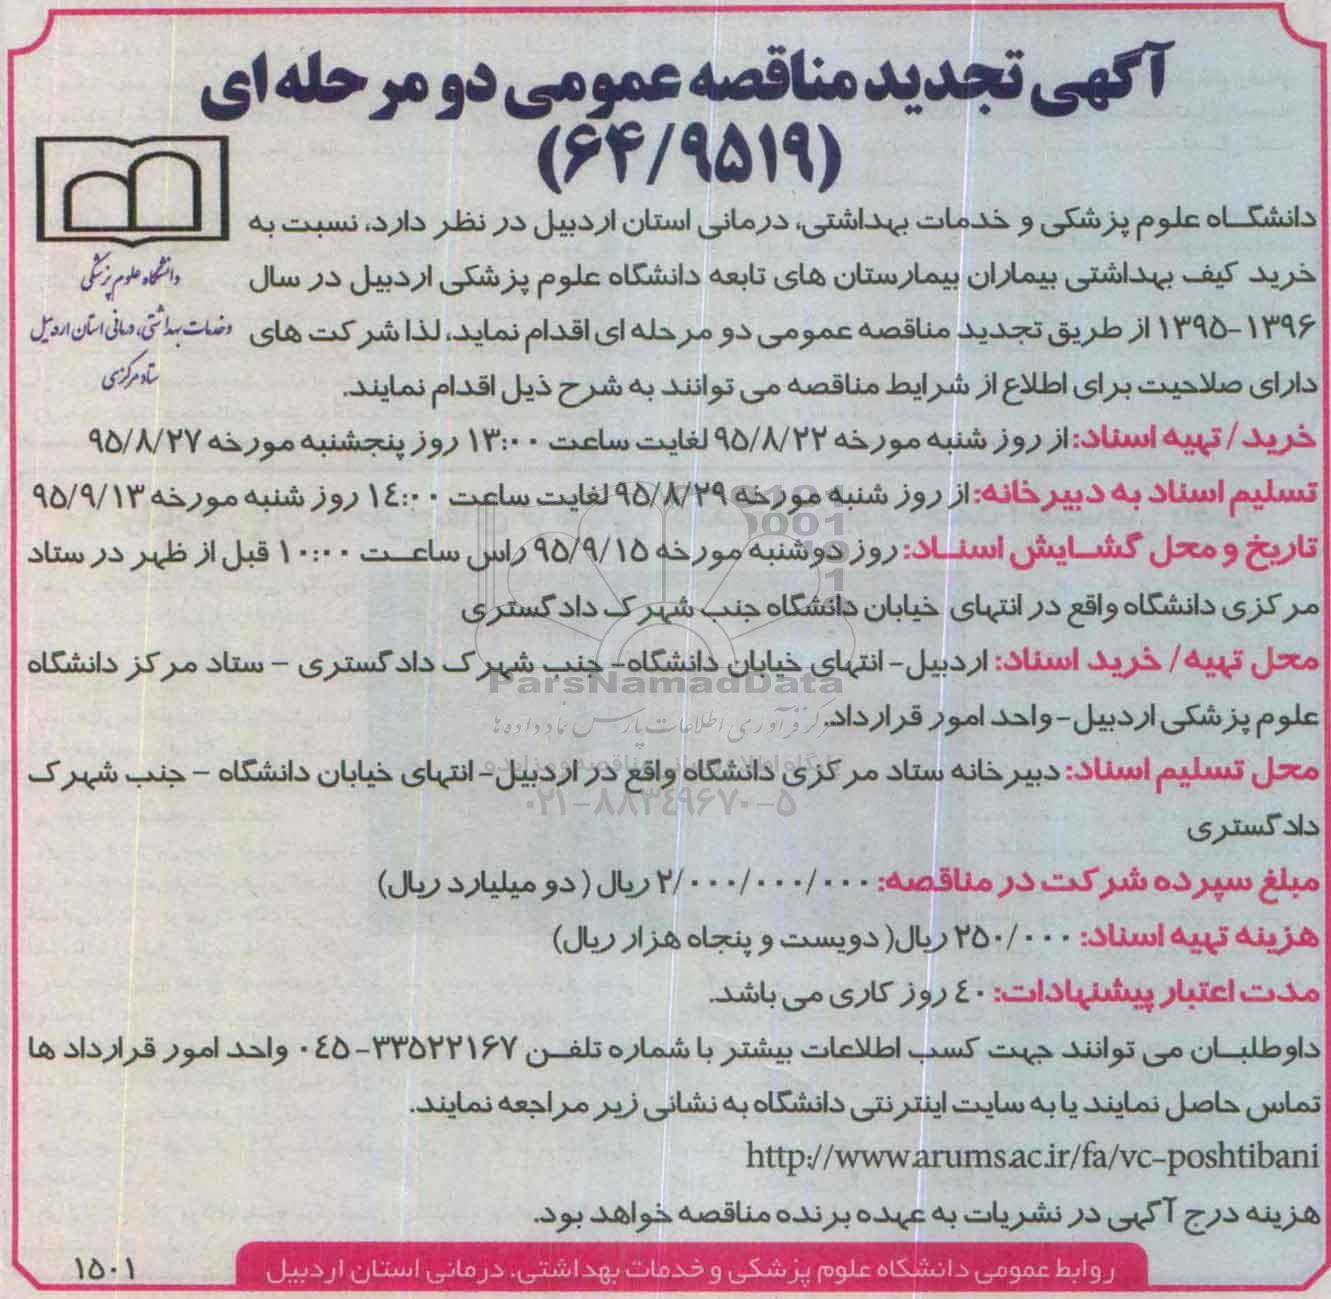 آگهی تجدید مناقصه عمومی دو مرحله ای
(۶۴/۹۵۱۹)
دانشگاه علوم پزشکی
وخدمات بهداشتی، درمانی استان اردبیل
ستاد مرکزی
دانشگاه علوم پزشکی و خدمات بهداشتی، درمانی استان اردبیل در نظر دارد، نسبت به
خرید کیف بهداشتی بیماران بیمارستان های تابعه دانشگاه علوم پزشکی اردبیل در سال
۱۳۹۶-۱۳۹۵ از طریق تجدید مناقصه عمومی دو مرحله ای اقدام نماید، لذا شرکت های
دارای صلاحیت برای اطلاع از شرایط مناقصه می توانند به شرح ذیل اقدام نمایند.
خرید / تهیه اسناد: از روز شنبه مورخه ۹۵/۸/۲۲ لغایت ساعت ۱۳:۰۰ روز پنجشنبه مورخه ۹۵/۸/۲۷
تسلیم اسناد به دبیرخانه: از روز شنبه مورخه ۹۵/۸/۲۹ لغایت ساعت ۱۴:۰۰ روز شنبه مورخه ۹۵/۹/۱۳
تاریخ و محل گشایش اسناد: روز دوشنبه مورخه ۹۵/۹/۱۵ راس ساعت ۱۰:۰۰ قبل از ظهر در ستاد
مرکزی دانشگاه واقع در انتهای خیابان دانشگاه جنب شهرک دادگستری
محل تهیه/ خرید اسناد: اردبیل- انتهای خیابان دانشگاه- جنب شهرک دادگستری - ستاد مرکز دانشگاه
علوم پزشکی اردبیل-واحد امور قرارداد.
محل تسلیم اسناد: دبیرخانه ستاد مرکزی دانشگاه واقع در اردبیل- انتهای خیابان دانشگاه - جنب شهرک
دادگستری
مبلغ سپرده شرکت در مناقصه: ۲/۰۰۰/۰۰۰/۰۰۰ ریال ( دو میلیارد ریال)
هزینه تهیه اسناد: ۲۵۰/۰۰۰ ریال( دویست و پنجاه هزار ریال)
مدت اعتبار پیشنهادات: ۴۰ روز کاری می باشد.
داوطلبان می توانند جهت کسب اطلاعات بیشتر با شماره تلفن ۳۳۵۲۲۱۶۷-۰۴۵ واحد امور قرارداد ها
تماس حاصل نمایند یا به سایت اینترنتی دانشگاه به نشانی زیر مراجعه نمایند.
http://www.arums.ac.ir/fa/vc-poshtibani
هزینه درج آگهی در نشریات به عهده برنده مناقصه خواهد بود.
روابط عمومی دانشگاه علوم پزشکی و خدمات بهداشتی، درمانی استان اردبیل
۱۵۰۱
ParsNamadData
۰۲۱-۸۸۳۴۹۶۷۰-۵